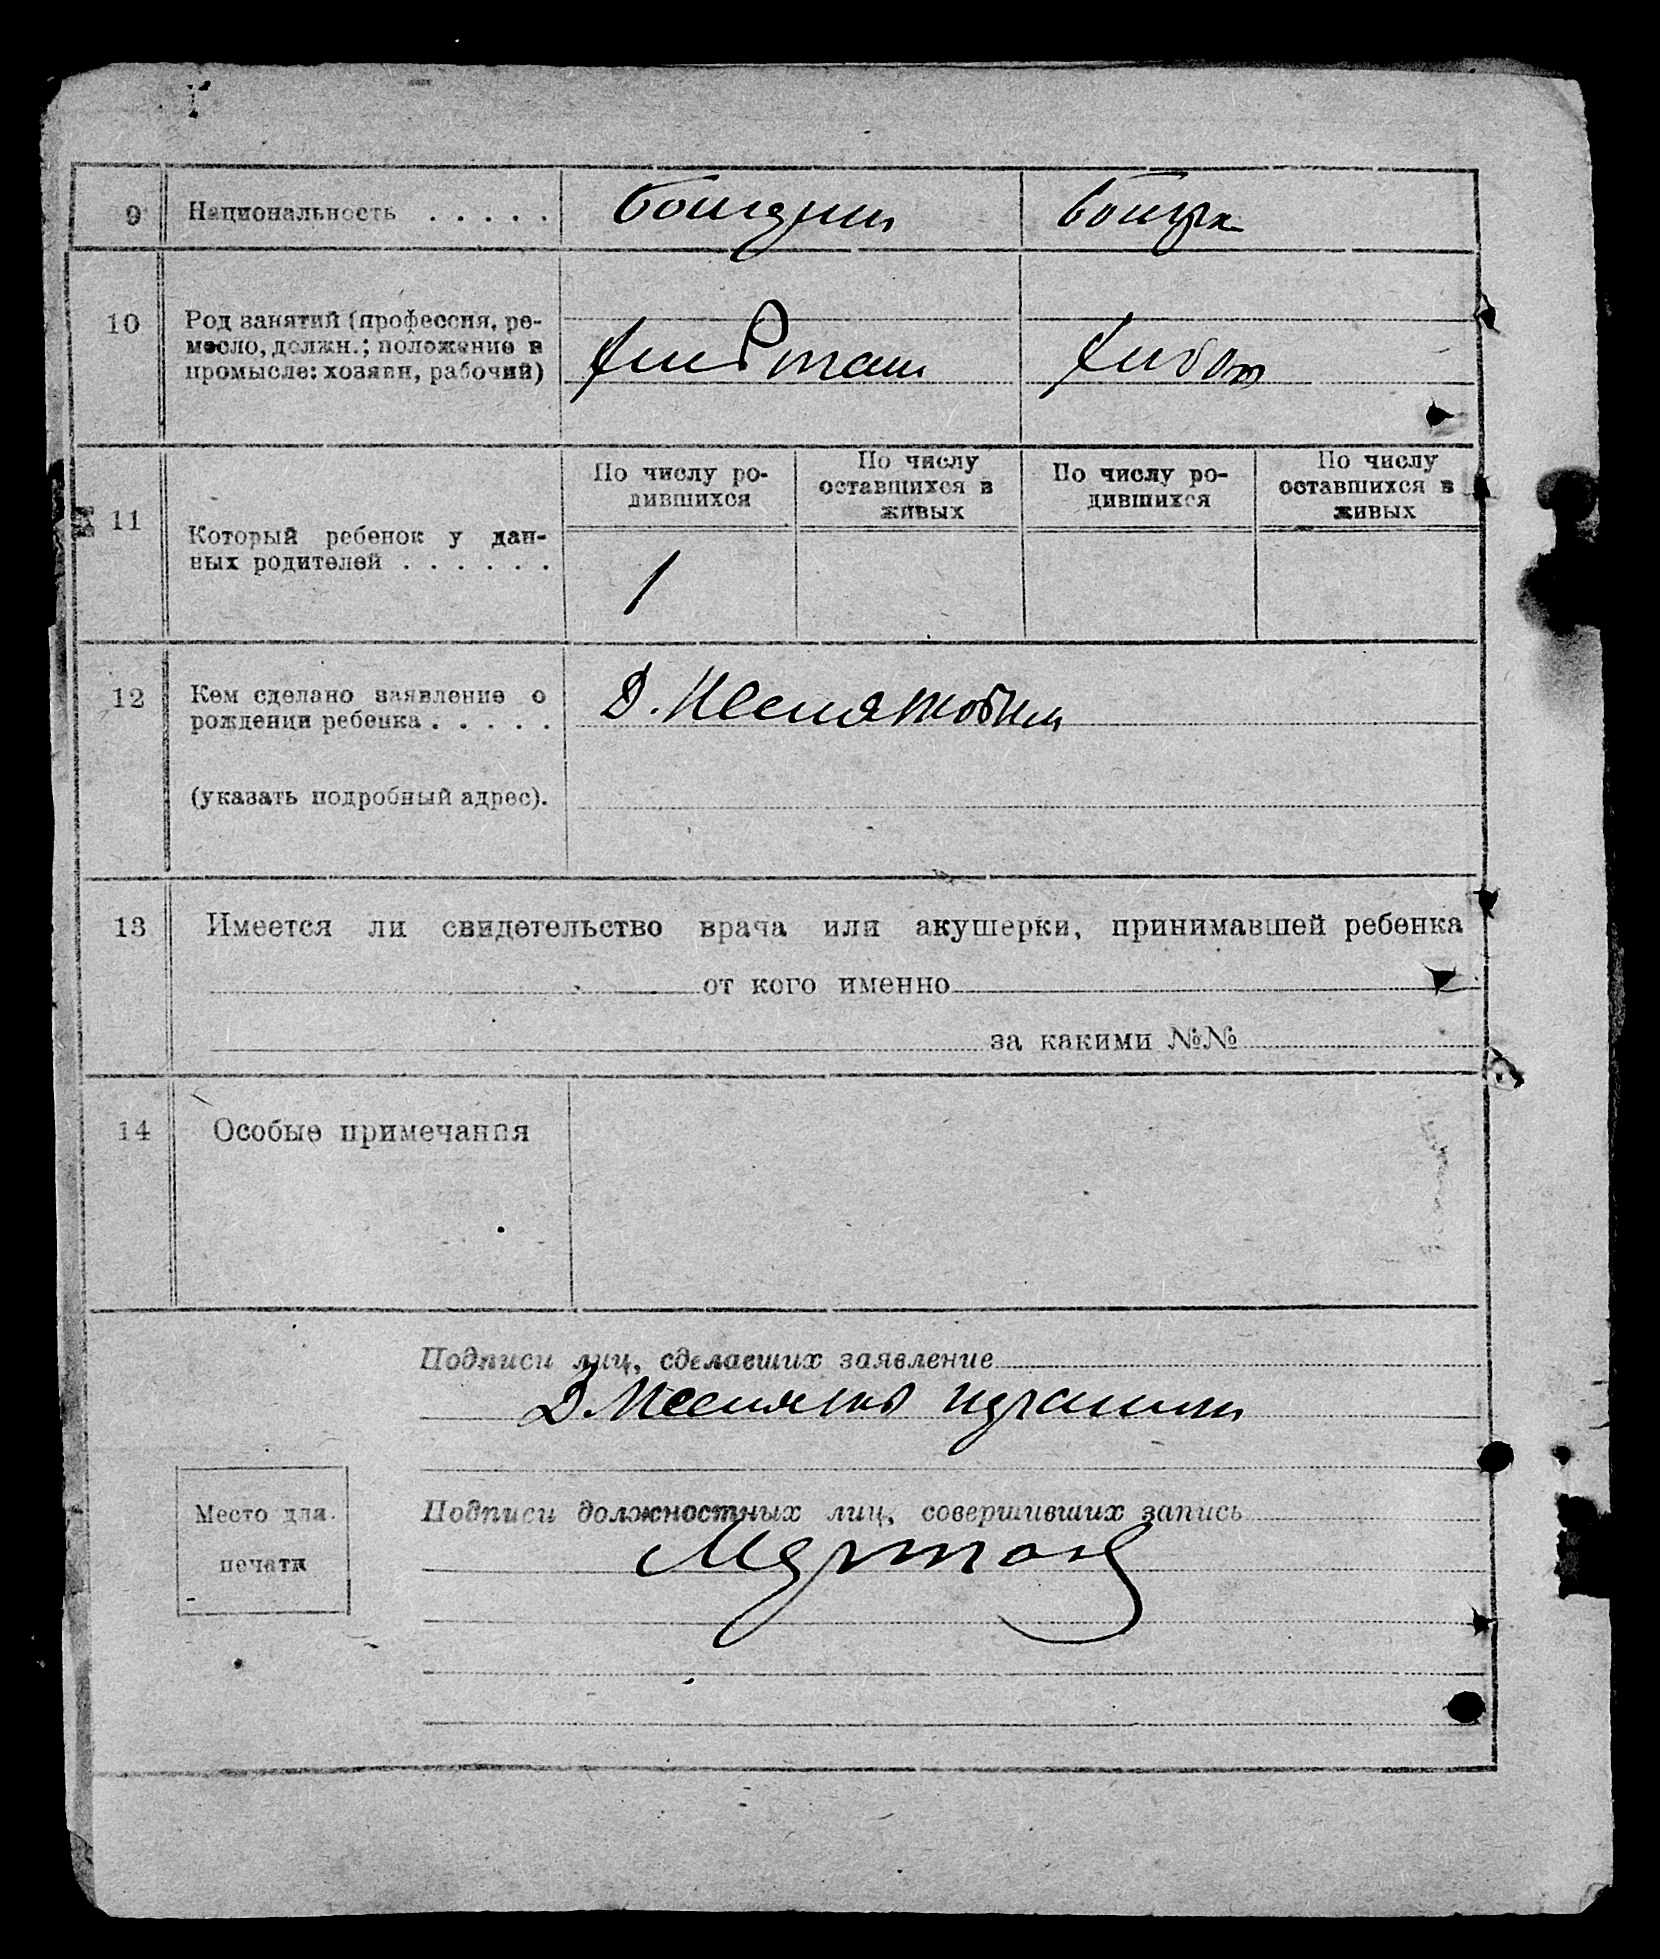 9 Национальность . . . . .
10 Род занятий (профессия, ре-
месло, должн.; положение в
промысле: хозяин, рабочий)
11 Который ребенок у дан-
ных родителей . . . . . .
По числу ро-
дившихся
По числу
оставшихся в
живых
По числу ро-
дившихся
По числу
оставшихся в
живых
1
12 Кем сделано заявление о
рождении ребенка . . . . .
(указать подробный адрес).
Д.
13 Имеется ли свидетельство врача или акушерки, принимавшей ребенка
от кого именно
за какими №№
14 Особые примечания
Подписи лиц, сделавших заявление
Д.
Место для
печати
Подписи должностных лиц, совершивших запись